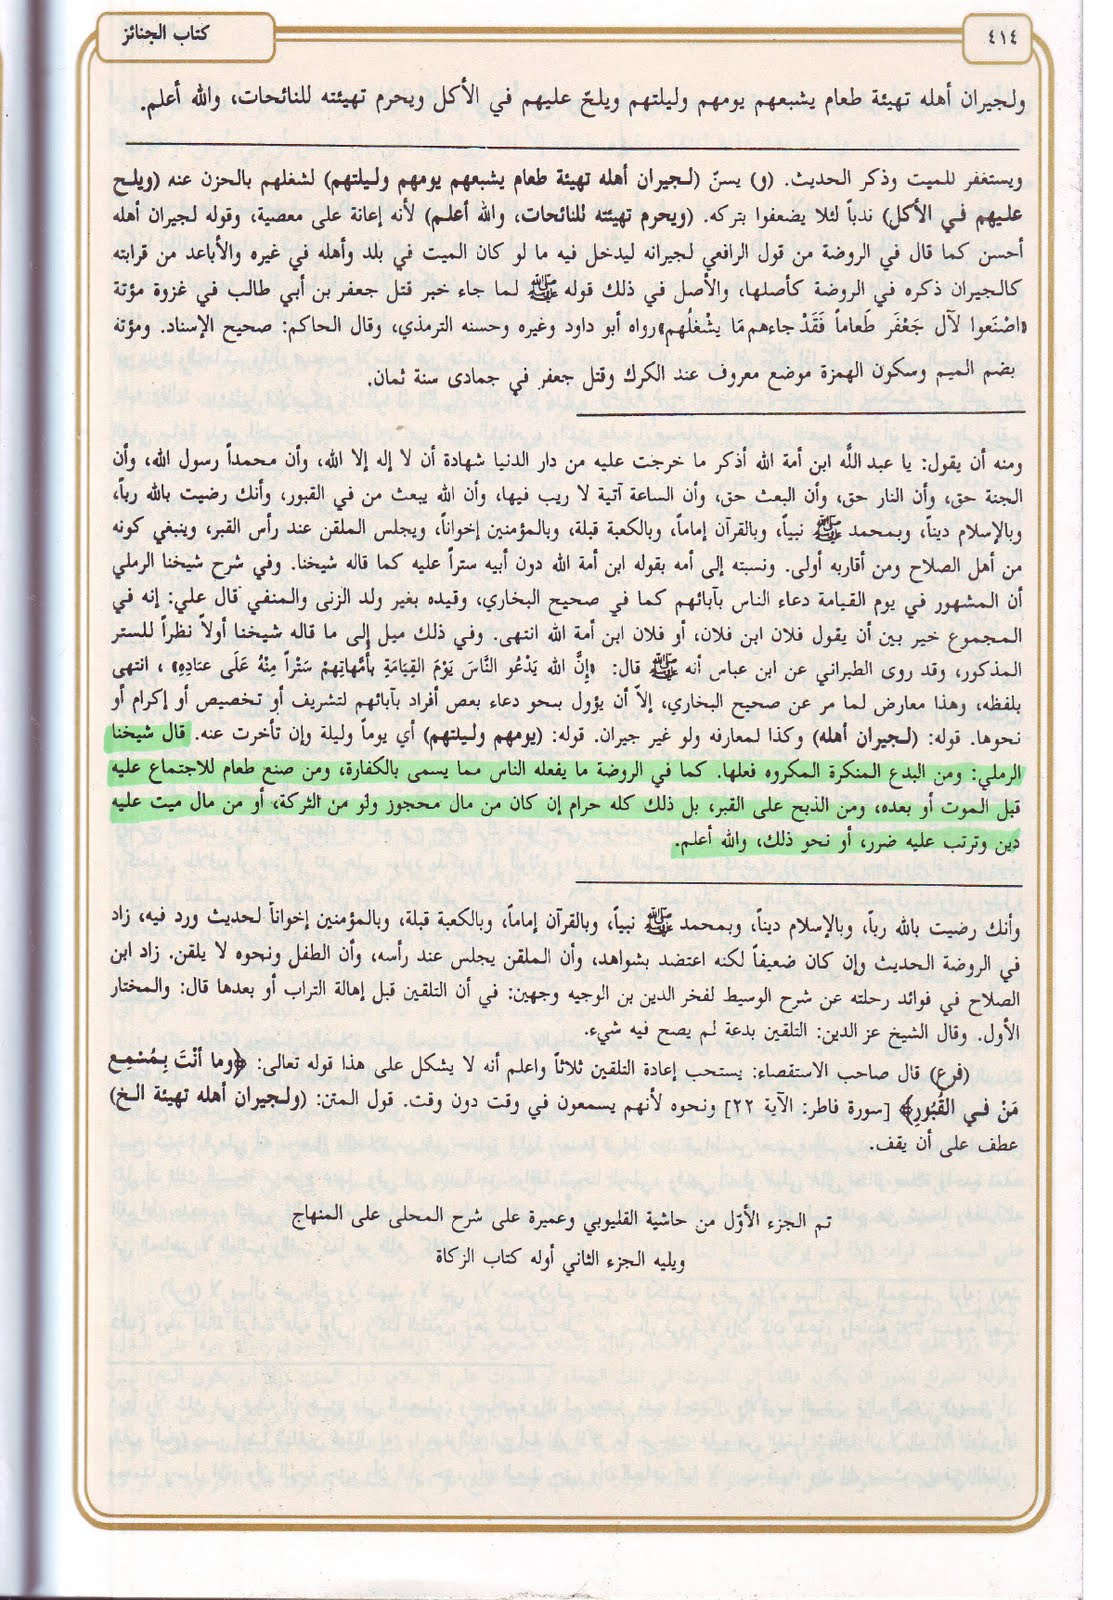 ٤١٤
كتاب الجنائز
ولجيران أهله تهيئة طعام يشبعهم يومهم وليلتهم ويلحّ عليهم في الأكل ويحرم تهيئته للنائحات، والله أعلم.
ويستغفر للميت وذكر الحديث. (و) يسنّ (لجيران أهله تهيئة طعام يشبعهم يومهم وليلتهم) لشغلهم بالحزن عنه (ويلح
عليهم في الأكل) ندباً لئلا يضعفوا بتركه. (ويحرم تهيئته للنائحات، والله أعلم) لأنه إعانة على معصية، وقوله لجيران أهله
أحسن كما قال في الروضة من قول الرافعي لجيرانه ليدخل فيه ما لو كان الميت في بلد وأهله في غيره والأباعد من قرابته
كالجيران ذكره في الروضة كأصلها، والأصل في ذلك قوله ﷺ لما جاء خبر قتل جعفر بن أبي طالب في غزوة مؤتة
«اصْنَعوا لآلِ جَعْفَر طَعاماً فَقَدْ جاءهم مَا يشْغلُهم» رواه أبو داود وغيره وحسنه الترمذي، وقال الحاكم: صحيح الإسناد. ومؤته
بضم الميم وسكون الهمزة موضع معروف عند الكرك وقتل جعفر في جمادى سنة ثمان.
ومنه أن يقول: يا عبد اللَّه ابن أمة الله أذكر ما خرجت عليه من دار الدنيا شهادة أن لا إله إلا الله، وأن محمداً رسول الله، وأن
الجنة حق، وأن النار حق، وأن البعث حق، وأن الساعة آتية لا ريب فيها، وأن الله يبعث من في القبور، وأنك رضيت بالله رباً،
وبالإسلام ديناً، وبمحمد ﷺ نبياً، وبالقرآن إماماً، وبالكعبة قبلة، وبالمؤمنين إخواناً، ويجلس الملقن عند رأس القبر، وينبغي كونه
من أهل الصلاح ومن أقاربه أولى. ونسبته إلى أمه بقوله ابن أمة الله دون أبيه ستراً عليه كما قاله شيخنا. وفي شرح شيخنا الرملي
أن المشهور في يوم القيامة دعاء الناس بآبائهم كما في صحيح البخاري، وقيده بغير ولد الزنى والمنفي قال علي: إنه في
المجموع خير بين أن يقول فلان ابن فلان، أو فلان ابن أمة الله انتهى. وفي ذلك ميل إلى ما قاله شيخنا أولاً نظراً للستر
المذكور، وقد روى الطبراني عن ابن عباس أنه ﷺ قال: «إنَّ الله يَدْعُو النَّاسَ يَوْمَ القِيَامَةِ بأُمَّهاتِهِمْ سَتْراً مِنْهُ عَلَى عبَادِهِ»، انتهى
بلفظه، وهذا معارض لما مر عن صحيح البخاري، إلاّ أن يؤول بنحو دعاء بعض أفراد بآبائهم لتشريف أو تخصيص أو إكرام أو
نحوها. قوله: (لجيران أهله) وكذا لمعارفه ولو غير جيران. قوله: (يومهم وليلتهم) أي يوماً وليلة وإن تأخرت عنه. قال شيخنا
الرملي: ومن البدع المنكرة المكروه فعلها. كما في الروضة ما يفعله الناس مما يسمى بالكفارة، ومن صنع طعام للاجتماع عليه
قبل الموت أو بعده، ومن الذبح على القبر، بل ذلك كله حرام إن كان من مال محجوز ولو من الثركة، أو من مال ميت عليه
دين وترتب عليه ضرر، أو نحو ذلك، والله أعلم.
وأنك رضيت بالله رباً، وبالإسلام ديناً، وبمحمد ﷺ نبياً، وبالقرآن إماماً، وبالكعبة قبلة، وبالمؤمنين إخواناً لحديث ورد فيه، زاد
في الروضة الحديث وإن كان ضعيفاً لكنه اعتضد بشواهد، وأن الملقن يجلس عند رأسه، وأن الطفل ونحوه لا يلقن. زاد ابن
الصلاح في فوائد رحلته عن شرح الوسيط لفخر الدين بن الوجيه وجهين: في أن التلقين قبل إهالة التراب أو بعدها قال: والمختار
الأول. وقال الشيخ عز الدين: التلقين بدعة لم يصح فيه شيء.
(فرع) قال صاحب الاستقصاء: يستحب إعادة التلقين ثلاثاً واعلم أنه لا يشكل على هذا قوله تعالى: ﴿وما أنْتَ بِمُسْمِعٍ
مَنْ في القُبُورِ﴾ [سورة فاطر: الآية ٢٢] ونحوه لأنهم يسمعون في وقت دون وقت. قول المتن: (ولجيران أهله تهيئة الخ)
عطف على أن يقف.
تم الجزء الأوّل من حاشية القليوبي وعميرة على شرح المحلى على المنهاج
ويليه الجزء الثاني أوله كتاب الزكاة